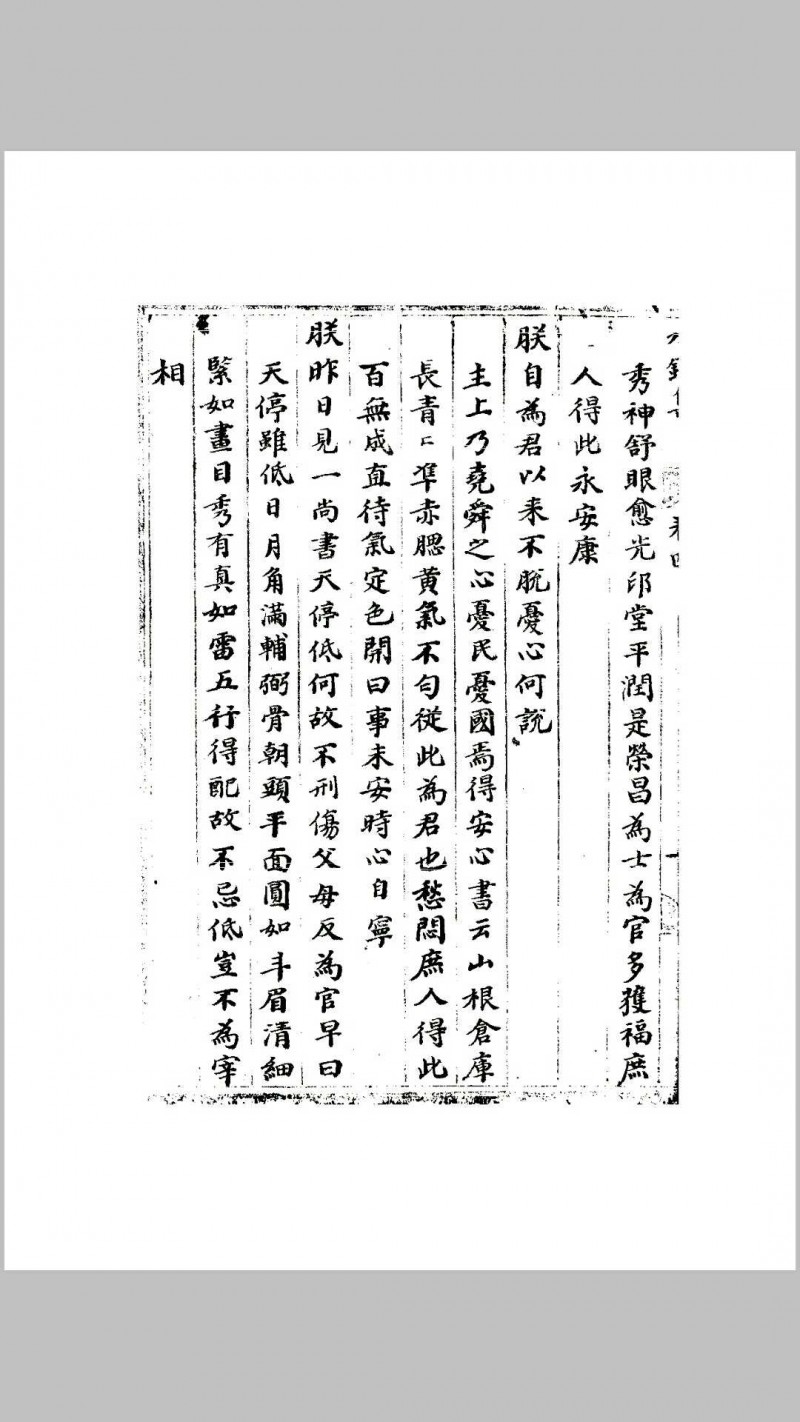 秀神舒眼愈光印堂平潤是榮昌為士為官多獲福庶
人得此永安康
朕自為君以来不脫憂心何説
主上乃堯舜之心憂民憂國焉得安心書云山根倉庫
長青〻準赤腮黄氣不匀從此為君也愁悶庶人得此
百無成直待氣定色開曰事未安時心自寧
朕昨日見一尚書天停低何故不刑傷父母反為官早曰
天停雖低日月角滿輔弼骨朝頭平面圓如斗眉清細
緊如畫目秀有真如雷五行得配故不忌低豈不為宰
相